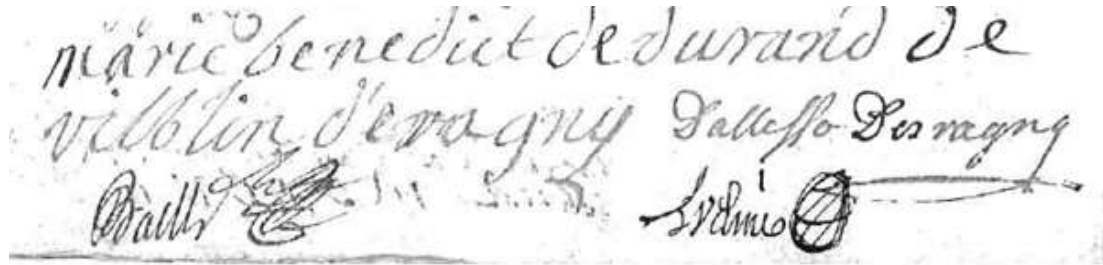 marie benedict de durand de
villblin d'eragny Dallesso Desragny
Baille